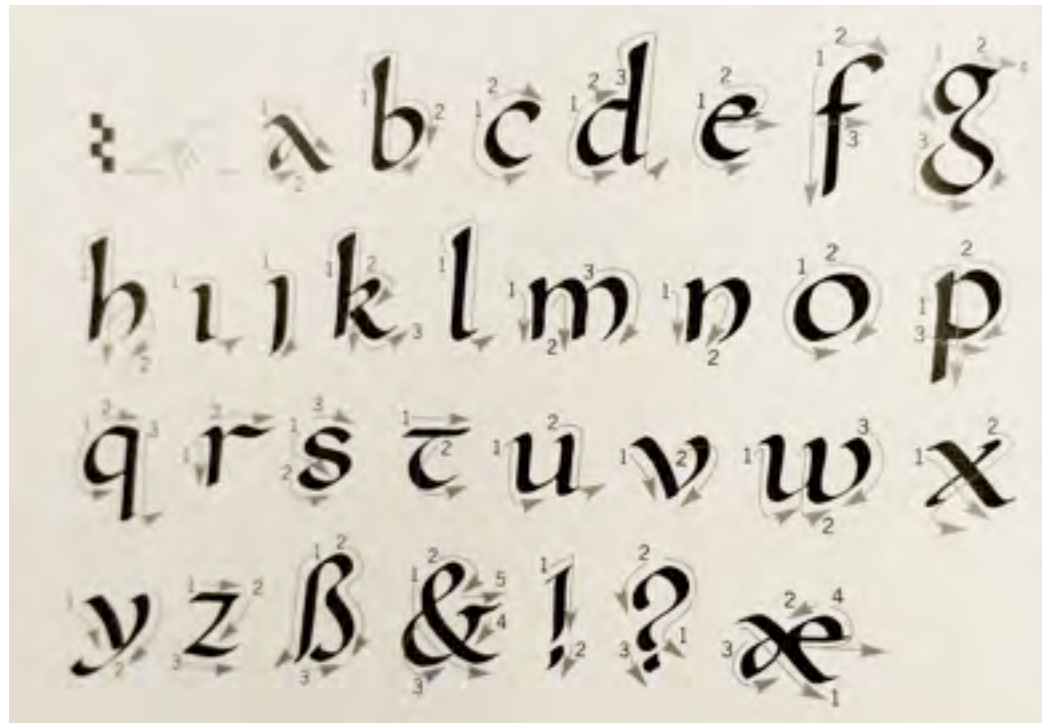 a b c d e f g
h ı ȷ k l m n o p
q r s t u v w x
y z ß & ! ? æ